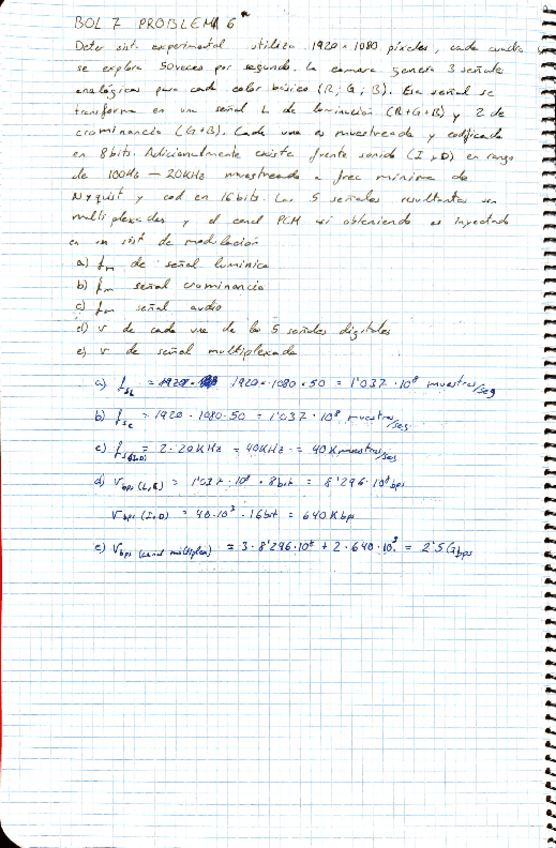 BOL 7 PROBLEMA 6
Deter sist. experimental utiliza 1920 x 1080 píxeles, cada cuadro
se explora 50 veces por segundo. La camara genera 3 señales
analógicas para cada color básico (R; G; B). Esa señal se
transforma en una señal L de luminación (R+G+B) y 2 de
crominancia (G+B). Cada una es muestreada y codificada
en 8 bits. Adicionalmente existe frente sonido (I y D) en rango
de 100Hz — 20KHz muestreada a frec mínima de
Nyquist y cod en 16 bits. Las 5 señales resultantes son
multiplexadas y el canal PCM así obteniendo es inyectado
en un sist de modulación
a) fm de señal luminica
b) fm señal crominancia
c) fm señal audio
d) v de cada una de las 5 señales digitales
e) v de señal multiplexada
a) fsL = 1920 · 1080 · 50 = 1'037 · 10⁸ muestras/seg
b) fsc = 1920 · 1080 · 50 = 1'037 · 10⁸ muestras/seg
c) fs(I,D) = 2 · 20KHz = 40KHz = 40 Kmuestras/seg
d) Vbps (L,C) = 1'037 · 10⁸ · 8bit = 8'296 · 10⁸ bps
Vbps (I,D) = 40·10³ · 16bit = 640 Kbps
e) Vbps (canal múltiplex) = 3 · 8'296·10⁸ + 2 · 640·10³ = 2'5 Gbps